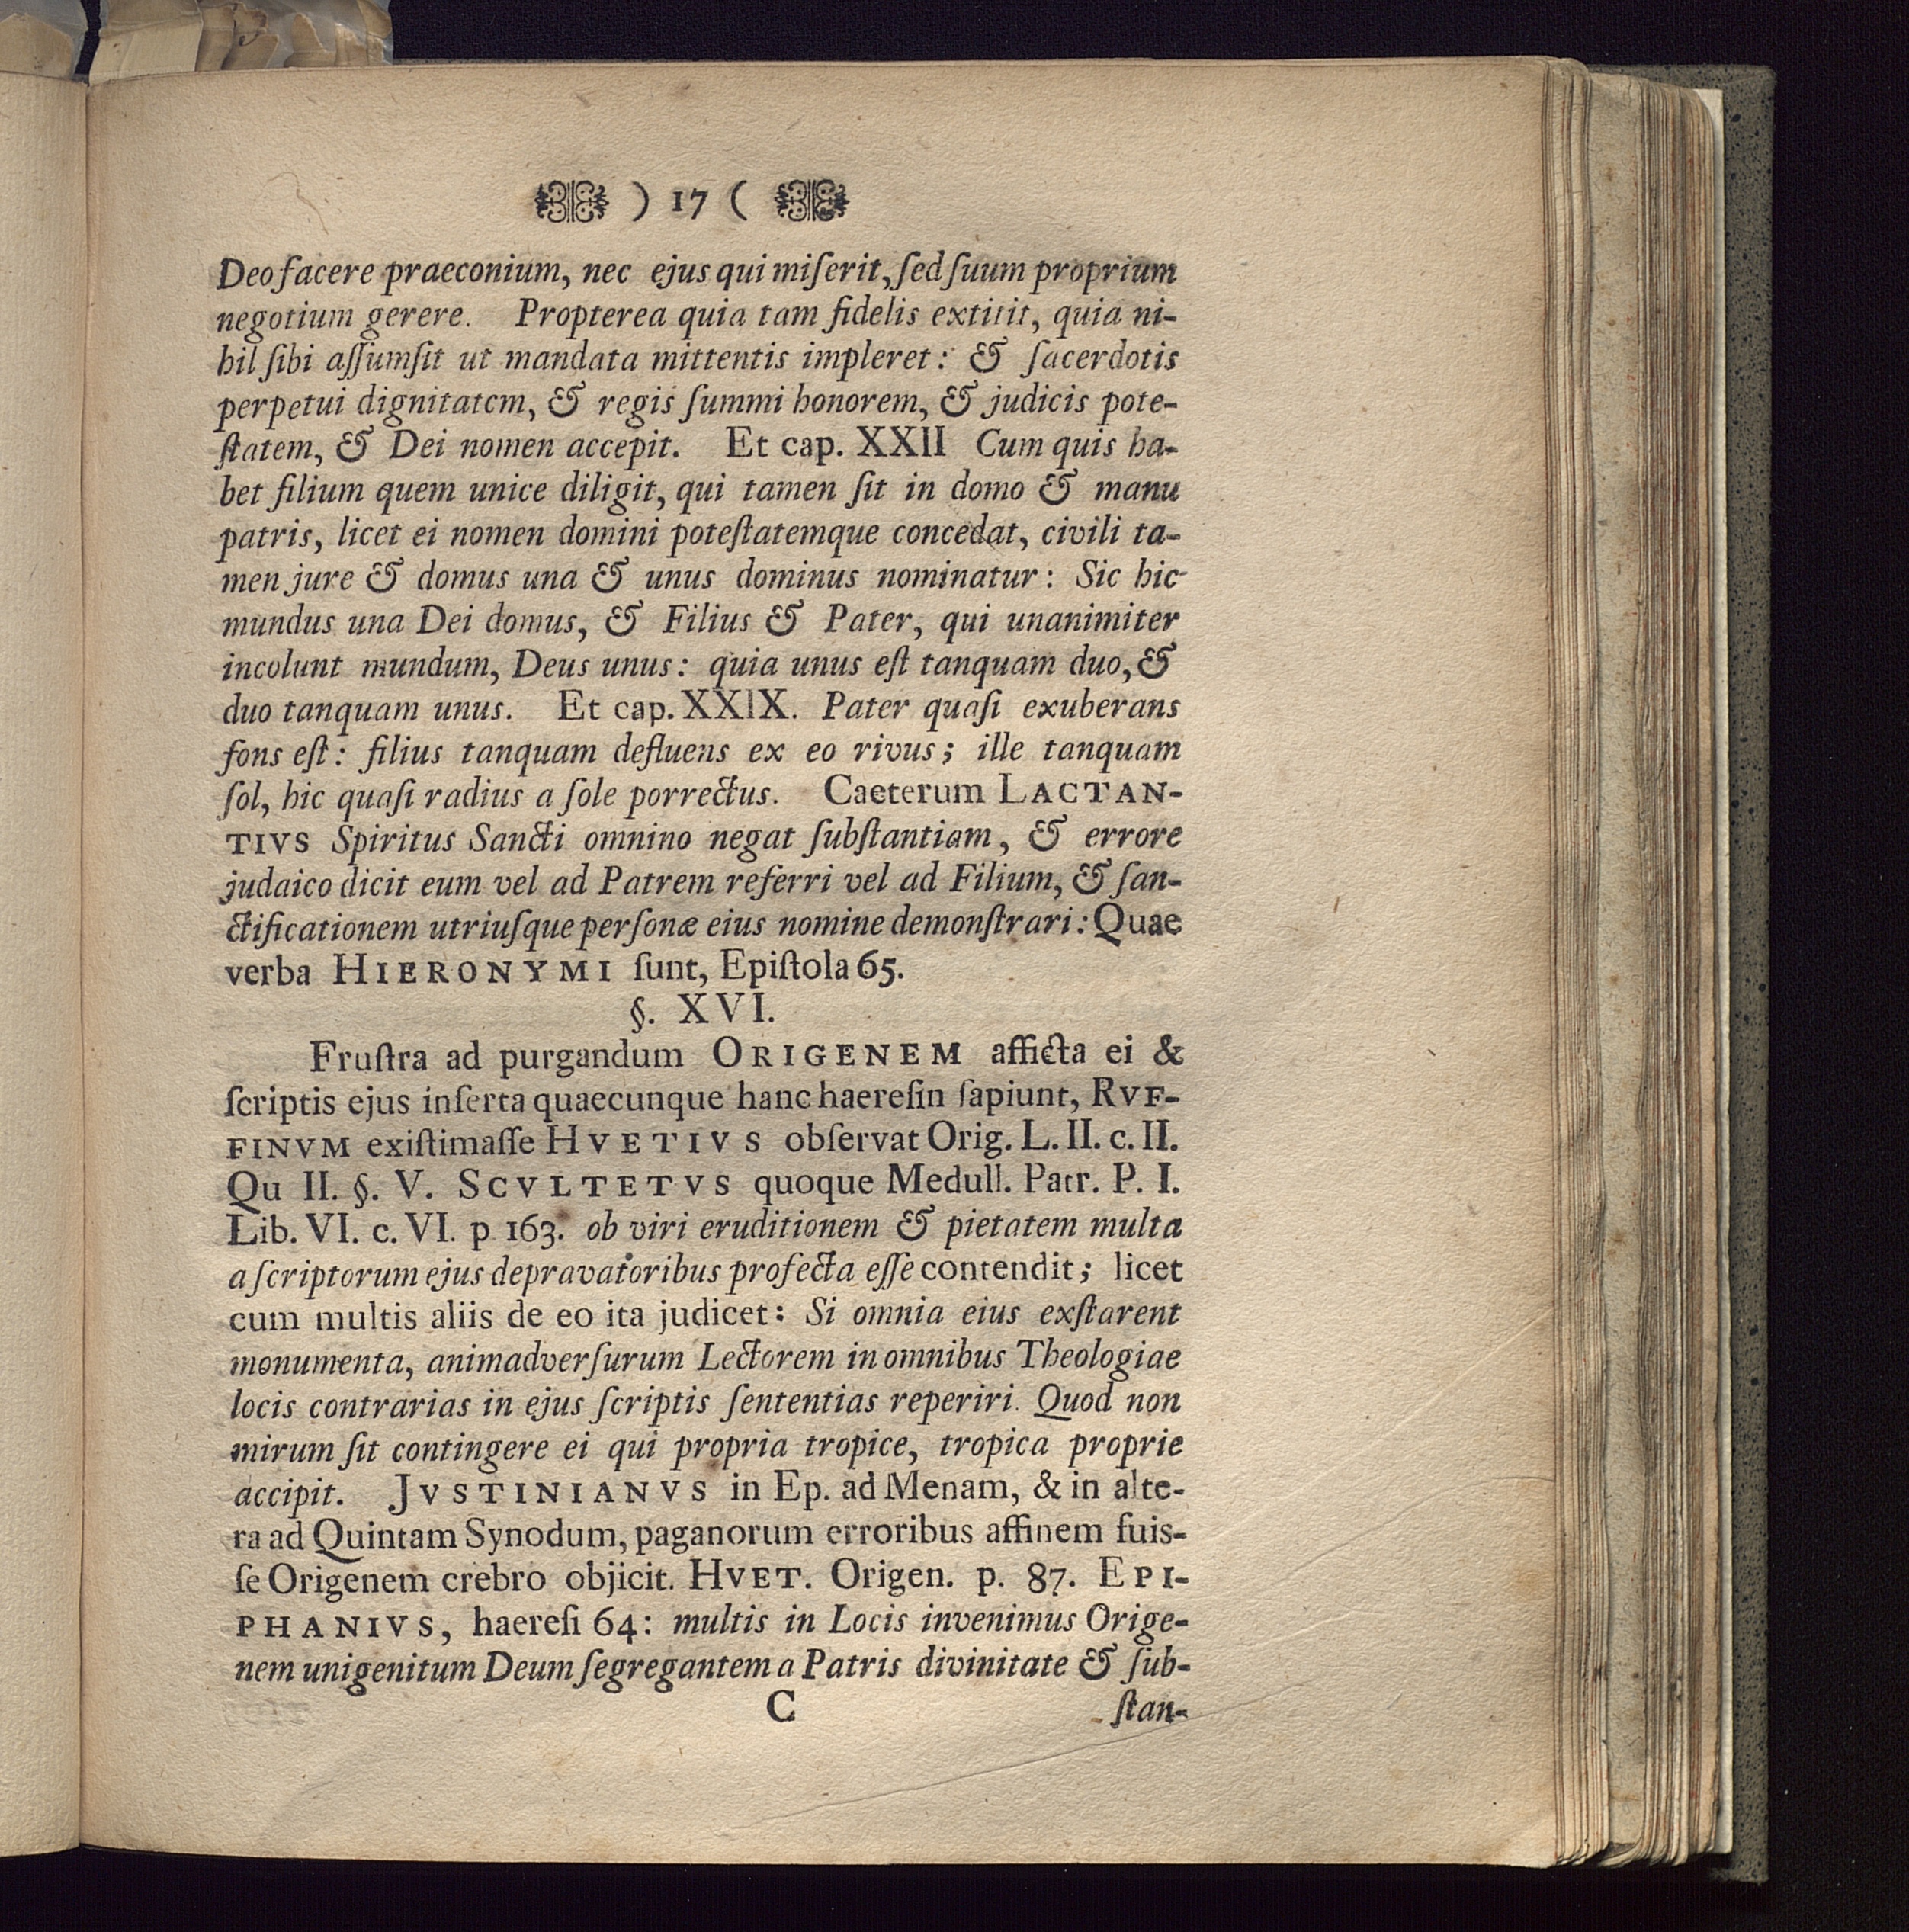 ) 17 (
Deo facere praeconium, nec ejus qui miſerit, ſed ſuum proprium
negotium gerere. Propterea quia tam fidelis extitit, quia ni-
hil ſibi aſſumſit ut mandata mittentis impleret: & ſacerdotis
perpetui dignitatem, & regis ſummi honorem, & judicis pote-
ſtatem, & Dei nomen accepit. Et cap. XXII Cum quis ha-
bet filium quem unice diligit, qui tamen ſit in domo & manu
patris, licet ei nomen domini poteſtatemque concedat, civili ta-
men jure & domus una & unus dominus nominatur: Sic hic
mundus una Dei domus, & Filius & Pater, qui unanimiter
incolunt mundum, Deus unus: quia unus eſt tanquam duo, &
duo tanquam unus. Et cap. XXIX. Pater quaſi exuberans
fons eſt: filius tanquam defluens ex eo rivus; ille tanquam
ſol, hic quaſi radius a ſole porrectus. Caeterum LACTAN-
TIVS Spiritus Sancti omnino negat ſubſtantiam, & errore
judaico dicit eum vel ad Patrem referri vel ad Filium, & ſan-
ctificationem utriuſque perſonæ eius nomine demonſtrari: Quae
verba HIERONYMI ſunt, Epiſtola 65.
§. XVI.
Fruſtra ad purgandum ORIGENEM afficta ei &
ſcriptis ejus inſerta quaecunque hanc haereſin ſapiunt, RVF-
FINVM exiſtimaſſe HVETIVS obſervat Orig. L. II. c. II.
Qu II. §. V. SCVLTETVS quoque Medull. Patr. P. I.
Lib. VI. c. VI. p 163. ob viri eruditionem & pietatem multa
a ſcriptorum ejus depravatoribus profecta eſſe contendit; licet
cum multis aliis de eo ita judicet: Si omnia eius exſtarent
monumenta, animadverſurum Lectorem in omnibus Theologiae
locis contrarias in ejus ſcriptis ſententias reperiri. Quod non
mirum ſit contingere ei qui propria tropice, tropica proprie
accipit. JVSTINIANVS in Ep. ad Menam, & in alte-
ra ad Quintam Synodum, paganorum erroribus affinem fuis-
ſe Origenem crebro objicit. HVET. Origen. p. 87. EPI-
PHANIVS, haereſi 64: multis in Locis invenimus Orige-
nem unigenitum Deum ſegregantem a Patris divinitate & ſub-
C ſtan-